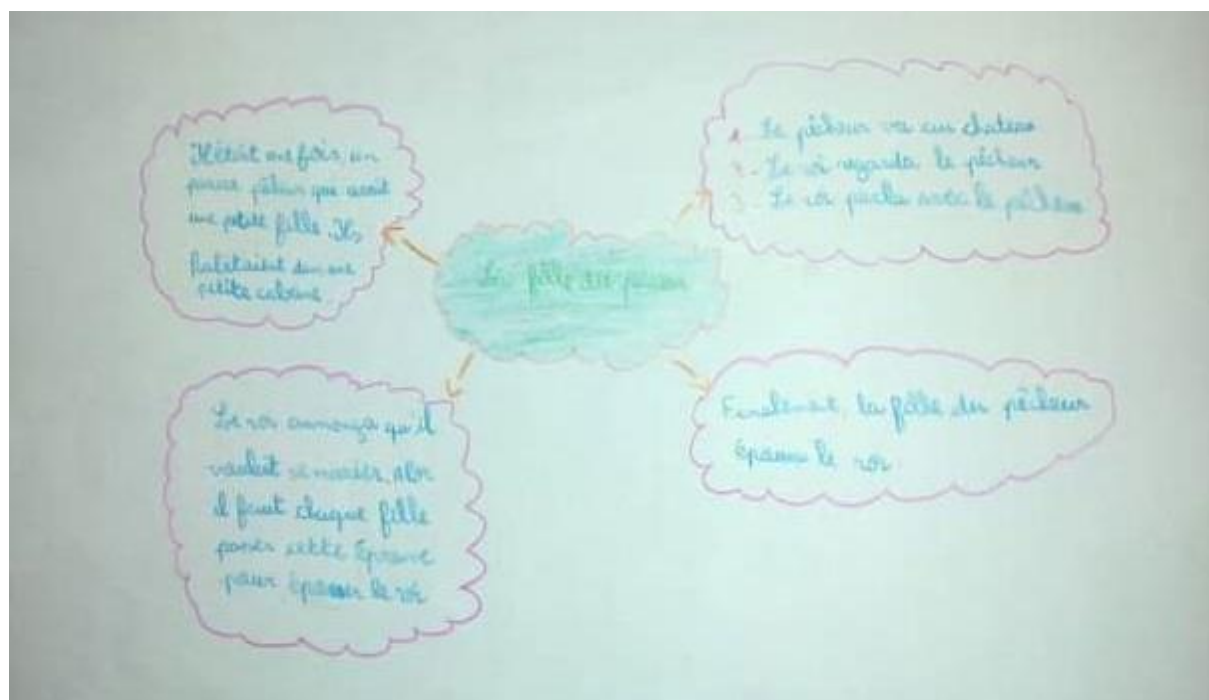 Il était une fois, un
pauvre pêheur que avait
une petite fille. Ils
habitaient dans une
petite cabane
1 - Le pêcheur va au chateau
2 - Le roi regarda le pêcheur
3 - Le roi parla avec le pêcheur
La fille du
Le roi annonça qu'il
voulait se marier, Alor
il faut chaque fille
passer cette épreuve
pour épouser le roi
Finalement, la fille du pêcheur
épouse le roi